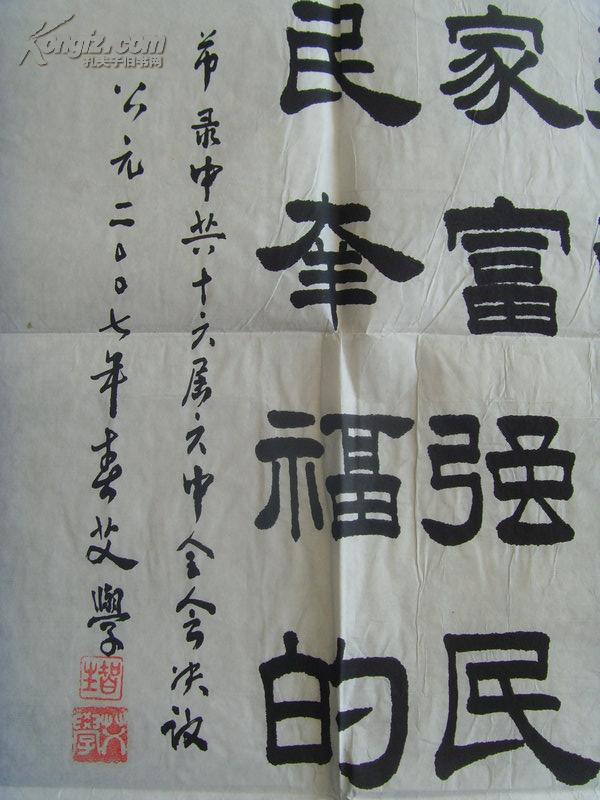 Kongfz.com
孔夫子旧书网
家富强民
民幸福的
节录中共十六届六中全会决议
公元二〇〇七年春艾學
艾學